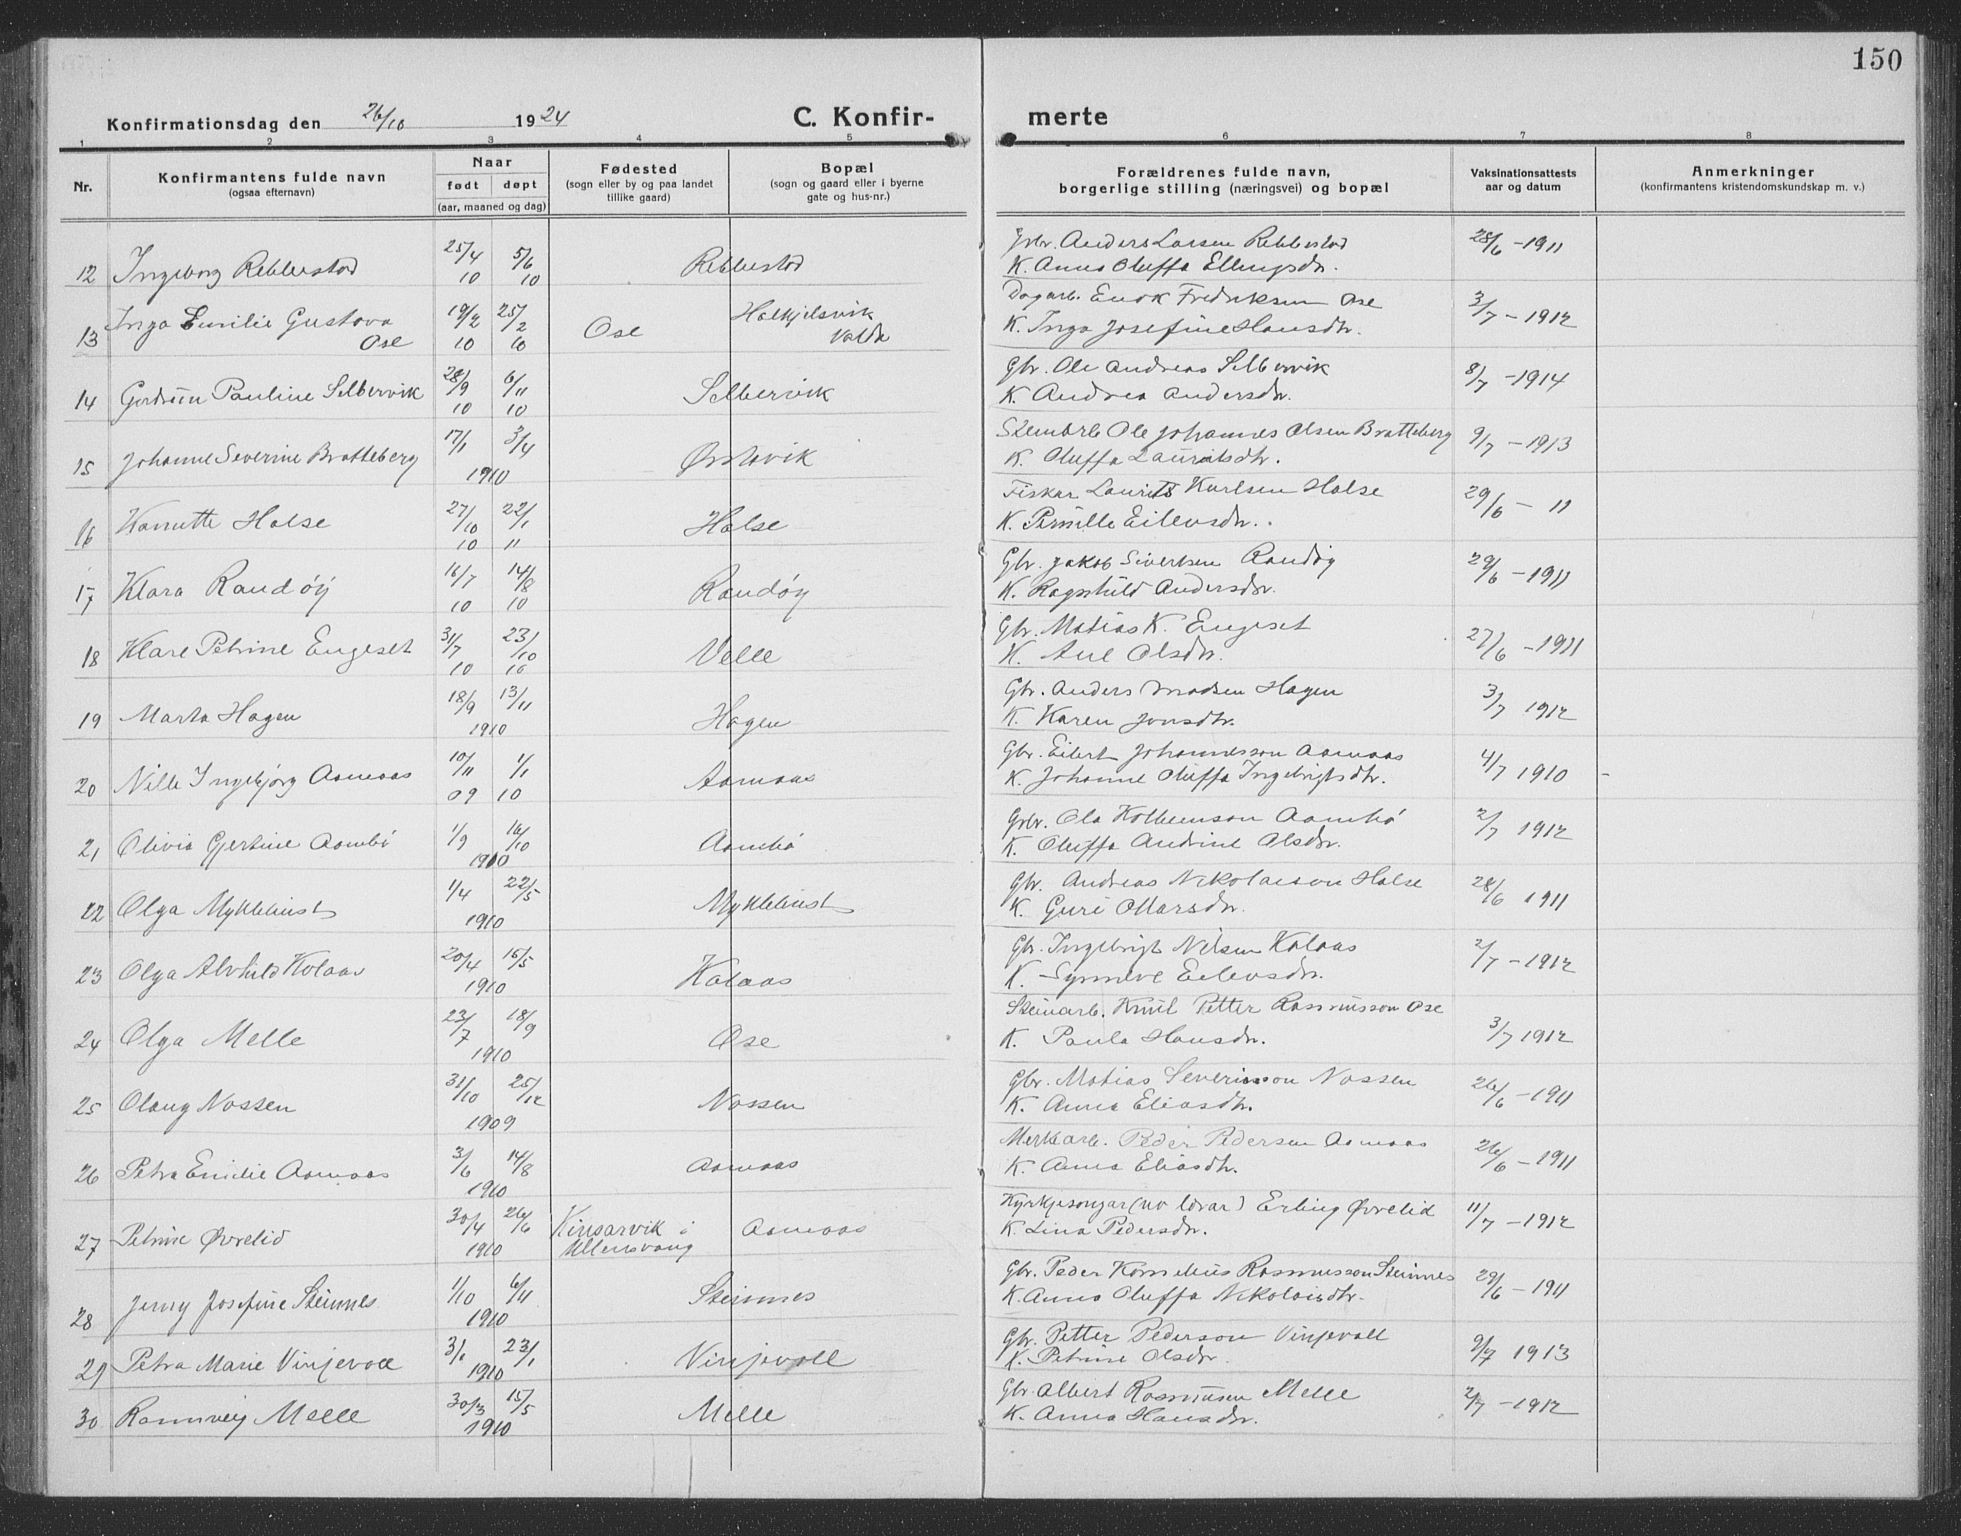 150
Konfirmationsdag den 26/10 1924 C. Konfirmerte
1 2 3 4 5 6 7 8
Nr. Konfirmantens fulde navn (ogsaa efternavn) Naar født døpt (aar, maaned og dag) Fødested (sogn eller by og paa landet tillike gaard) Bopæl (sogn og gaard eller i byerne gate og hus-nr.) Forældrenes fulde navn, borgerlige stilling (næringsvei) og bopæl Vaksinationsattests aar og datum Anmerkninger (konfirmantens kristendomskundskap m. v.)
12 Ingeborg Rebbestad 25/4 10 5/6 10 Rebbestad Anders Larsen Rebbestad K. Anna Oluffa Ellingsdr. 28/6 -1911
13 Inga Emilie Gustava Ose 19/2 10 25/2 10 Ose Halkjelsvik Volda Dagarb. Enok Fredriksen Ose K. Inga Josefine Hansdtr. 3/7 -1912
14 Gudrun Pauline Selbervik 28/9 10 6/11 10 Selbervik Gbr. Ole Andreas Selbervik K. Andrea Andersdr. 8/7 -1914
15 Johanne Severine Bratteberg 17/1 3/4 1910 Ørstavik Ole Johannes Olsen Bratteberg K. Oluffa Lauritsdtr. 9/7 -1913
16 Hanutte Halse 27/10 10 22/1 11 Halse Fiskar Laurits Karlsen Halse K. Pernille Eilevsdr. 29/6 - 11
17 Klara Randøy 16/7 10 14/8 10 Randøy Gbr. Jakob Sivertsen Randøy K. Ragnhild Andersdr. 29/6 -1911
18 Klare Petrine Engeset 31/7 10 23/10 10 Velle Gbr. Matias K. Engeset K. Ane Olsdr. 27/6 -1911
19 Marta Hagen 18/9 13/11 1910 Hagen Gbr. Anders Madsen Hagen K. Karen Jonsdtr. 3/7 1912
20 Nille Ingebjørg Aamaas 10/11 09 1/1 10 Aamaas Gbr. Eilert Johannesson Aamaas K. Johanne Oluffa Ingebrigtsdtr. 4/7 1910 -
21 Olivia Gjertine Aambø 1/9 16/10 1910 Aambø Ola Aambø K. Oluffa Andrine Olsdr. 2/7 1912
22 Olga Myklebust 1/4 22/5 1910 Myklebust Gbr. Andreas Nikolaison Halse K. Guri Olsdr. 28/6 1911
23 Olga Alvhild Kolaas 20/4 15/5 1910 Kolaas Gbr. Ingebrigt Nilsen Kolaas K. Synneve Eilevsdr. 2/7 -1912
24 Olga Melle 23/7 18/9 1910 Ose Steinarb. Knut Petter Rasmusson Ose K. Paula Hansdr. 3/7 1912
25 Olaug Nossen 31/10 25/12 1909 Nossen Gbr. Matias Severinson Nossen K. Anna Eliasdtr. 26/6 -1911
26 Petra Emilie Aamaas 3/6 14/8 1910 Aamaas Peder Pedersen Aamaas K. Anna Eliasdtr. 26/6 -1911
27 Petrine Øvrelid 30/4 26/6 1910 Kinsarvik i Ullensvang Aamaas Kyrkjesongar (no lærar) Erling Øvrelid K. Lina Pedersdr. 11/7 -1912
28 Jenny Josefine Steinnes 1/10 6/11 1910 Steinnes Gbr. Peder Kornelius Rasmusson Steinnes K. Anna Oluffa Nikolaisdtr. 29/6 -1911
29 Petra Marie Vinjevoll 3/1 23/1 1910 Vinjevoll Gbr. Petter Pederson Vinjevoll K. Petrine Olsdr. 9/7 1913
30 Rannveig Melle 30/3 15/5 1910 Melle Gbr. Albert Rasmusen Melle K. Anna Hansdr. 2/7 -1912